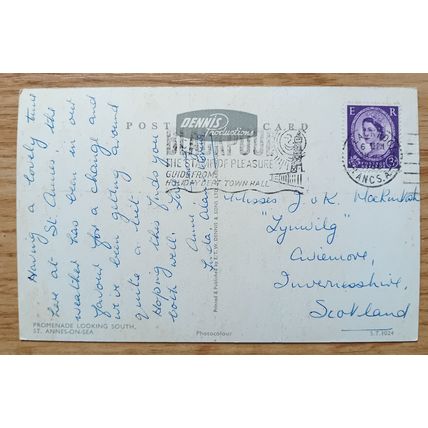 Having a lovely time
here at St Annes. The
weather has been in our
favour for a change and
we've been getting around
quite a bit.
Hoping this finds you
both well. Love
Anne
Linda, Alan
POST CARD
DENNIS
Productions
BLACKPOOL
THE CITY OF PLEASURE
GUIDE FROM
HOLIDAY DEPT. TOWN HALL
E R
LANCS.A
Misses J & K. Mackintosh
"Lynwilg"
Aviemore,
Invernesshire,
Scotland
PROMENADE LOOKING SOUTH,
ST. ANNES-ON-SEA
Photocolour
S.T.4024